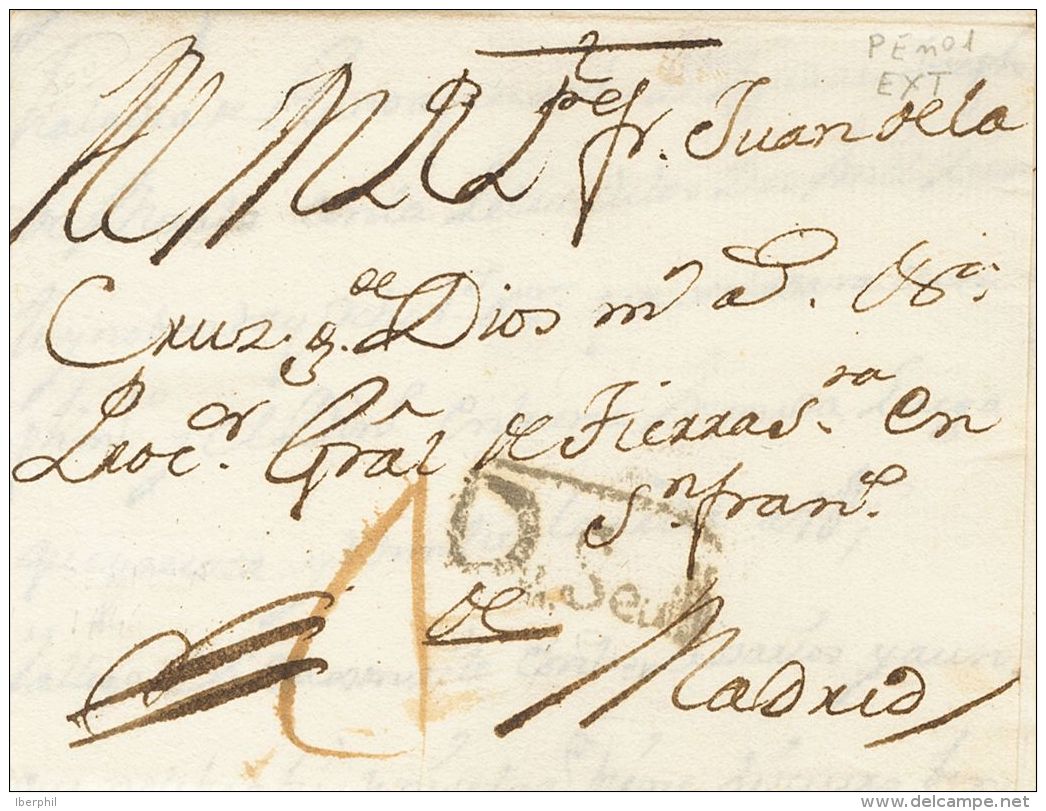 PEnº1
EXT
Al M R P.e fr. Juan de la
Cruz. q. de Dios m.s a.s
Proc.or Gral de Tierra S.ta en
S.n Fran.co
de
Madrid
Iberphil
delcampe.net